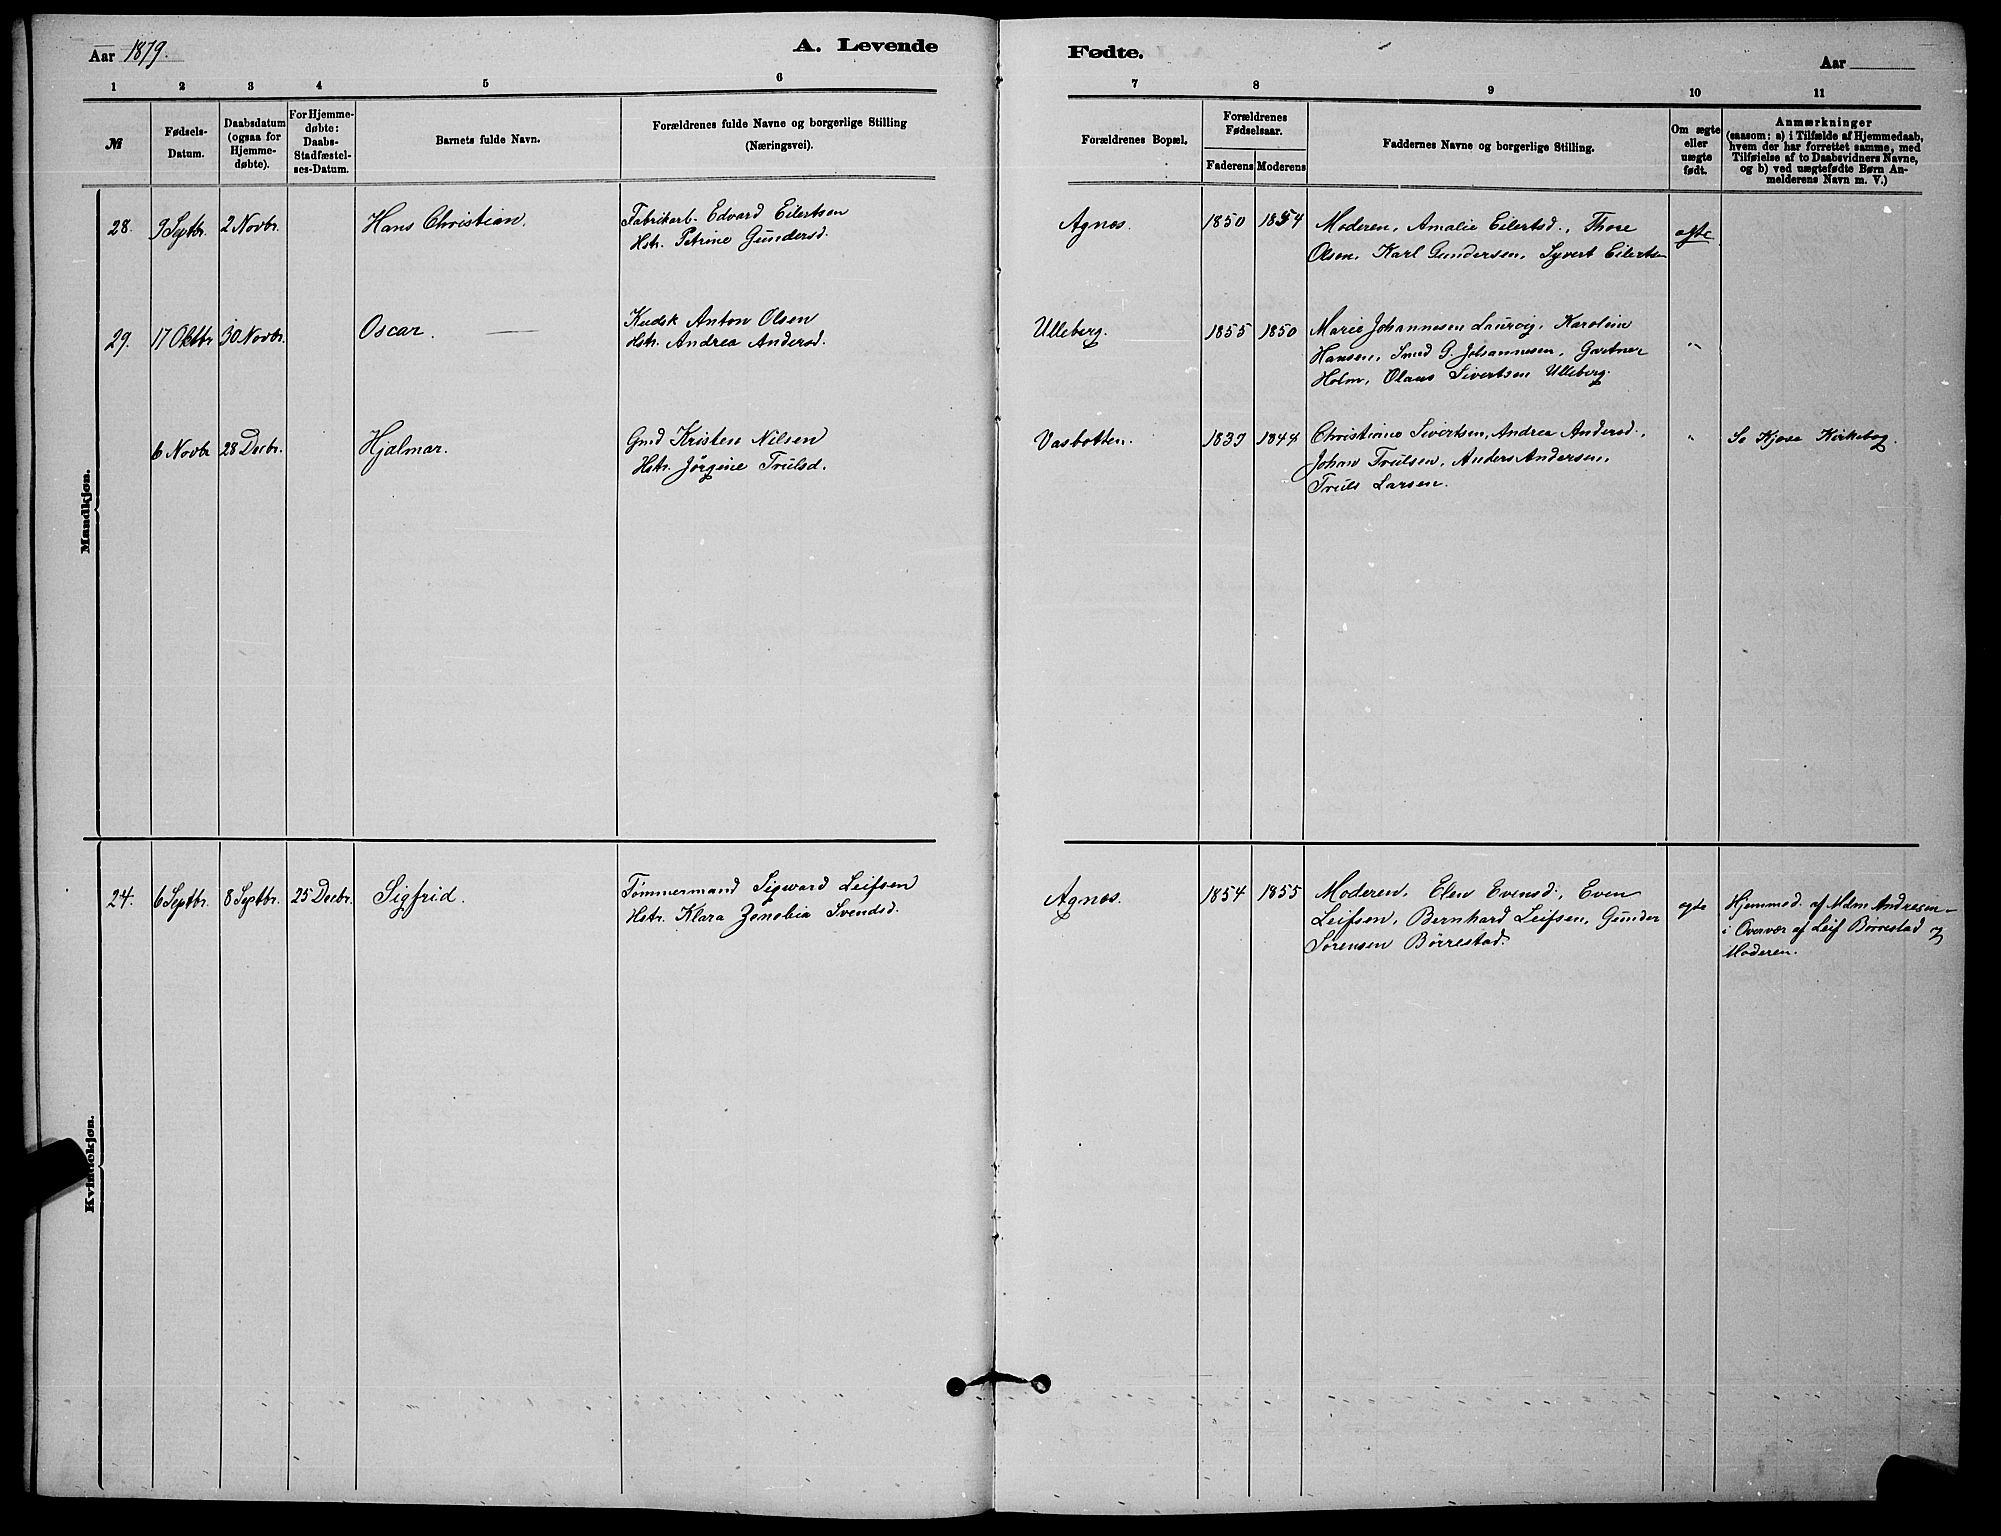 Aar 1879.
A. Levende
Fødte.
Aar
1
2
3
4
5
6
7
8
9
10
11
№
Fødsels-
Datum.
Daabsdatum
(ogsaa for
Hjemme-
døbte).
For Hjemme-
døbte:
Daabs-
Stadfæstel-
ses-Datum.
Barnets fulde Navn.
Forældrenes fulde Navne og borgerlige Stilling
(Næringsvei).
Forældrenes Bopæl.
Forældrenes
Fødselsaar.
Faderens
Moderens
Faddernes Navne og borgerlige Stilling.
Om ægte
eller
uægte
født.
Anmærkninger
(saasom: a) i Tilfælde af Hjemmedaab,
hvem der har forrettet samme, med
Tilføielse af to Daabsvidners Navne,
og b) ved uægtefødte Børn An-
melderens Navn m. V.)
Mandkjøn.
28. 9 Septbr. 2 Novbr. Hans Christian. Fabrikarb. Edvard Eilertsen
Hstr. Petrine Gundersd.
Agnes. 1850 1854 Moderen, Amalie Eilertsd., Thore
Olsen, Karl Gundersen, Syvert Eilertsen
ægte
29. 17 Oktbr 30 Novbr. Oscar. Kudsk Anton Olsen
Hstr. Andrea Andersd.
Ulleberg. 1855 1850 Marie Johannesen Laurvig, Karoline
Hansen, Smed G. Johannesen, Gartner
Holm, Olaus Sivertsen Ulleberg.
"
6 Novbr 28 Decbr. Hjalmar. Gmd Kristen Nilsen
Hstr. Jörgine Trulsd.
Vasbotten. 1837 1844 Christiane Sivertsen, Andrea Andersd.,
Johan Trulsen, Anders Andersen,
Truls Larsen.
" Se Kjose Kirkebog.
Kvindekjøn.
24. 6 Septbr. 8 Septbr. 25 Decbr. Sigfrid. Tømmermand Sigward Leifsen
Hstr. Klara Zenobia Svendsd.
Agnes. 1854 1855 Moderen, Elen Evensd., Even
Leifsen, Bernhard Leifsen, Gunder
Sørensen Børrestad.
ægte
Hjemmed. af Mdm Andresen
i Overvær af Leif Børrestad og
Moderen.